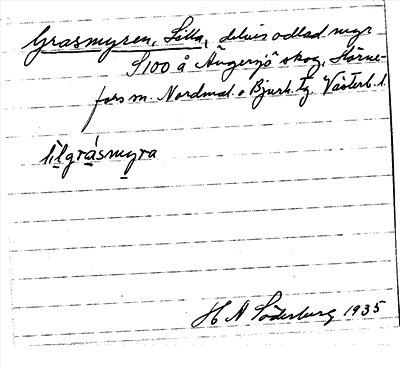 Grasmyren, Lilla, delvis odlad myr
S100 å Ängersjö skog, Hörne-
fors m. Nordmal. o Bjurh. tg. Västerb. l.
lìlgrásmyra
H A Söderburg 1935